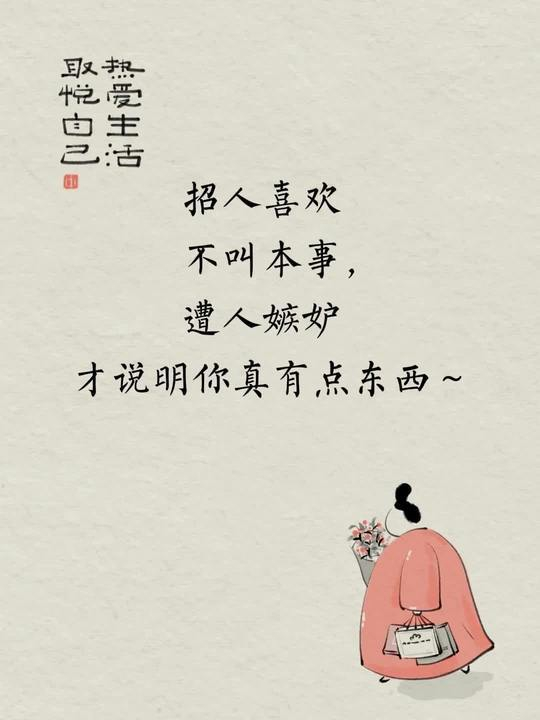 热爱生活
取悦自己
招人喜欢
不叫本事，
遭人嫉妒
才说明你真有点东西～